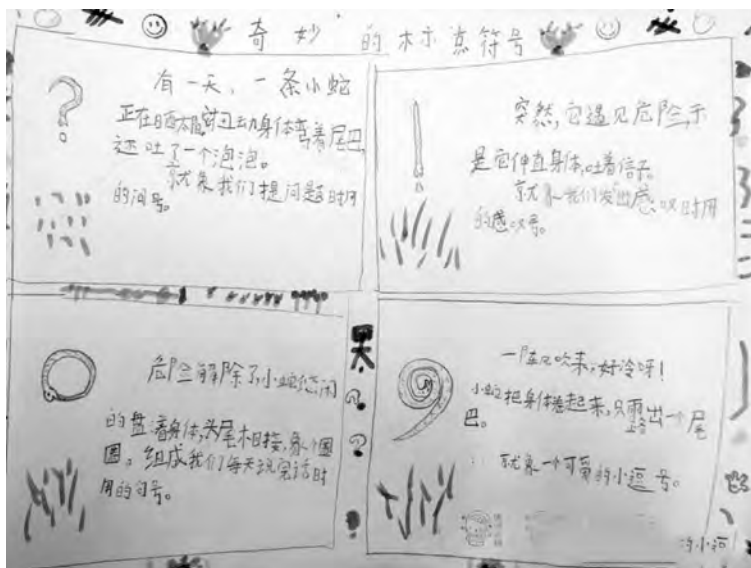 奇妙的标点符号
有一天，一条小蛇
正在晒太阳，它弯着尾巴，
还吐了一个泡泡。
就象我们提问题时用
的问号。
突然，它遇见危险，于
是它伸直身体，吐着信子。
就象我们发出感叹时用
的感叹号。
危险解除了，小蛇悠闲
的盘着身体，头尾相接，象个圆
圈。组成我们每天说完话时
用的句号。
一阵风吹来，好冷呀！
小蛇把身体卷起来，只露出一个尾
巴。
就象一个可爱的小逗号。
的小河